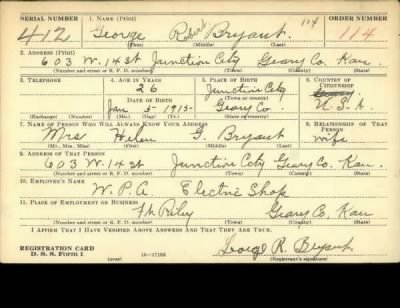 SERIAL NUMBER 1. NAME (Print) ORDER NUMBER
412 George Robert Bryant 114 114
(First) (Middle) (Last)
2. ADDRESS (Print)
603 W. 14 St Junction City Geary Co. Kan.
(Number and street or R. F. D. number) (Town) (County) (State)
3. TELEPHONE 4. AGE IN YEARS 5. PLACE OF BIRTH 6. COUNTRY OF CITIZENSHIP
26 Junction City
DATE OF BIRTH (Town or county)
Jan 5- 1915- Geary Co. U.S.A.
(Exchange) (Number) (Mo.) (Day) (Yr.) (State or country)
7. NAME OF PERSON WHO WILL ALWAYS KNOW YOUR ADDRESS 8. RELATIONSHIP OF THAT PERSON
Mrs Helen G. Bryant wife
(Mr., Mrs., Miss) (First) (Middle) (Last)
9. ADDRESS OF THAT PERSON
603 W. 14 St Junction City Geary Co. Kan.
(Number and street or R. F. D. number) (Town) (County) (State)
10. EMPLOYER'S NAME
W.P.A. Electric Shop
11. PLACE OF EMPLOYMENT OR BUSINESS
Ft. Riley Geary Co. Kan
(Number and street or R. F. D. number) (Town) (County) (State)
I AFFIRM THAT I HAVE VERIFIED ABOVE ANSWERS AND THAT THEY ARE TRUE.
REGISTRATION CARD
D. S. S. Form 1 (over) George R. Bryant
(Registrant's signature)